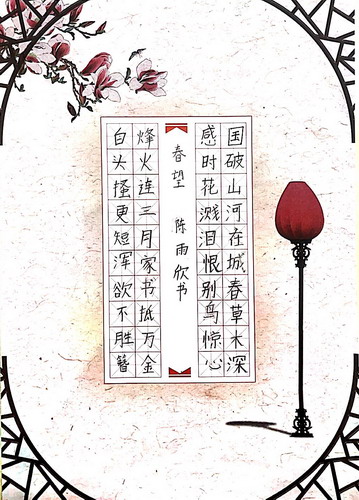 国破山河在城春草木深
感时花溅泪恨别鸟惊心
春望 陈雨欣书
烽火连三月家书抵万金
白头搔更短浑欲不胜簪